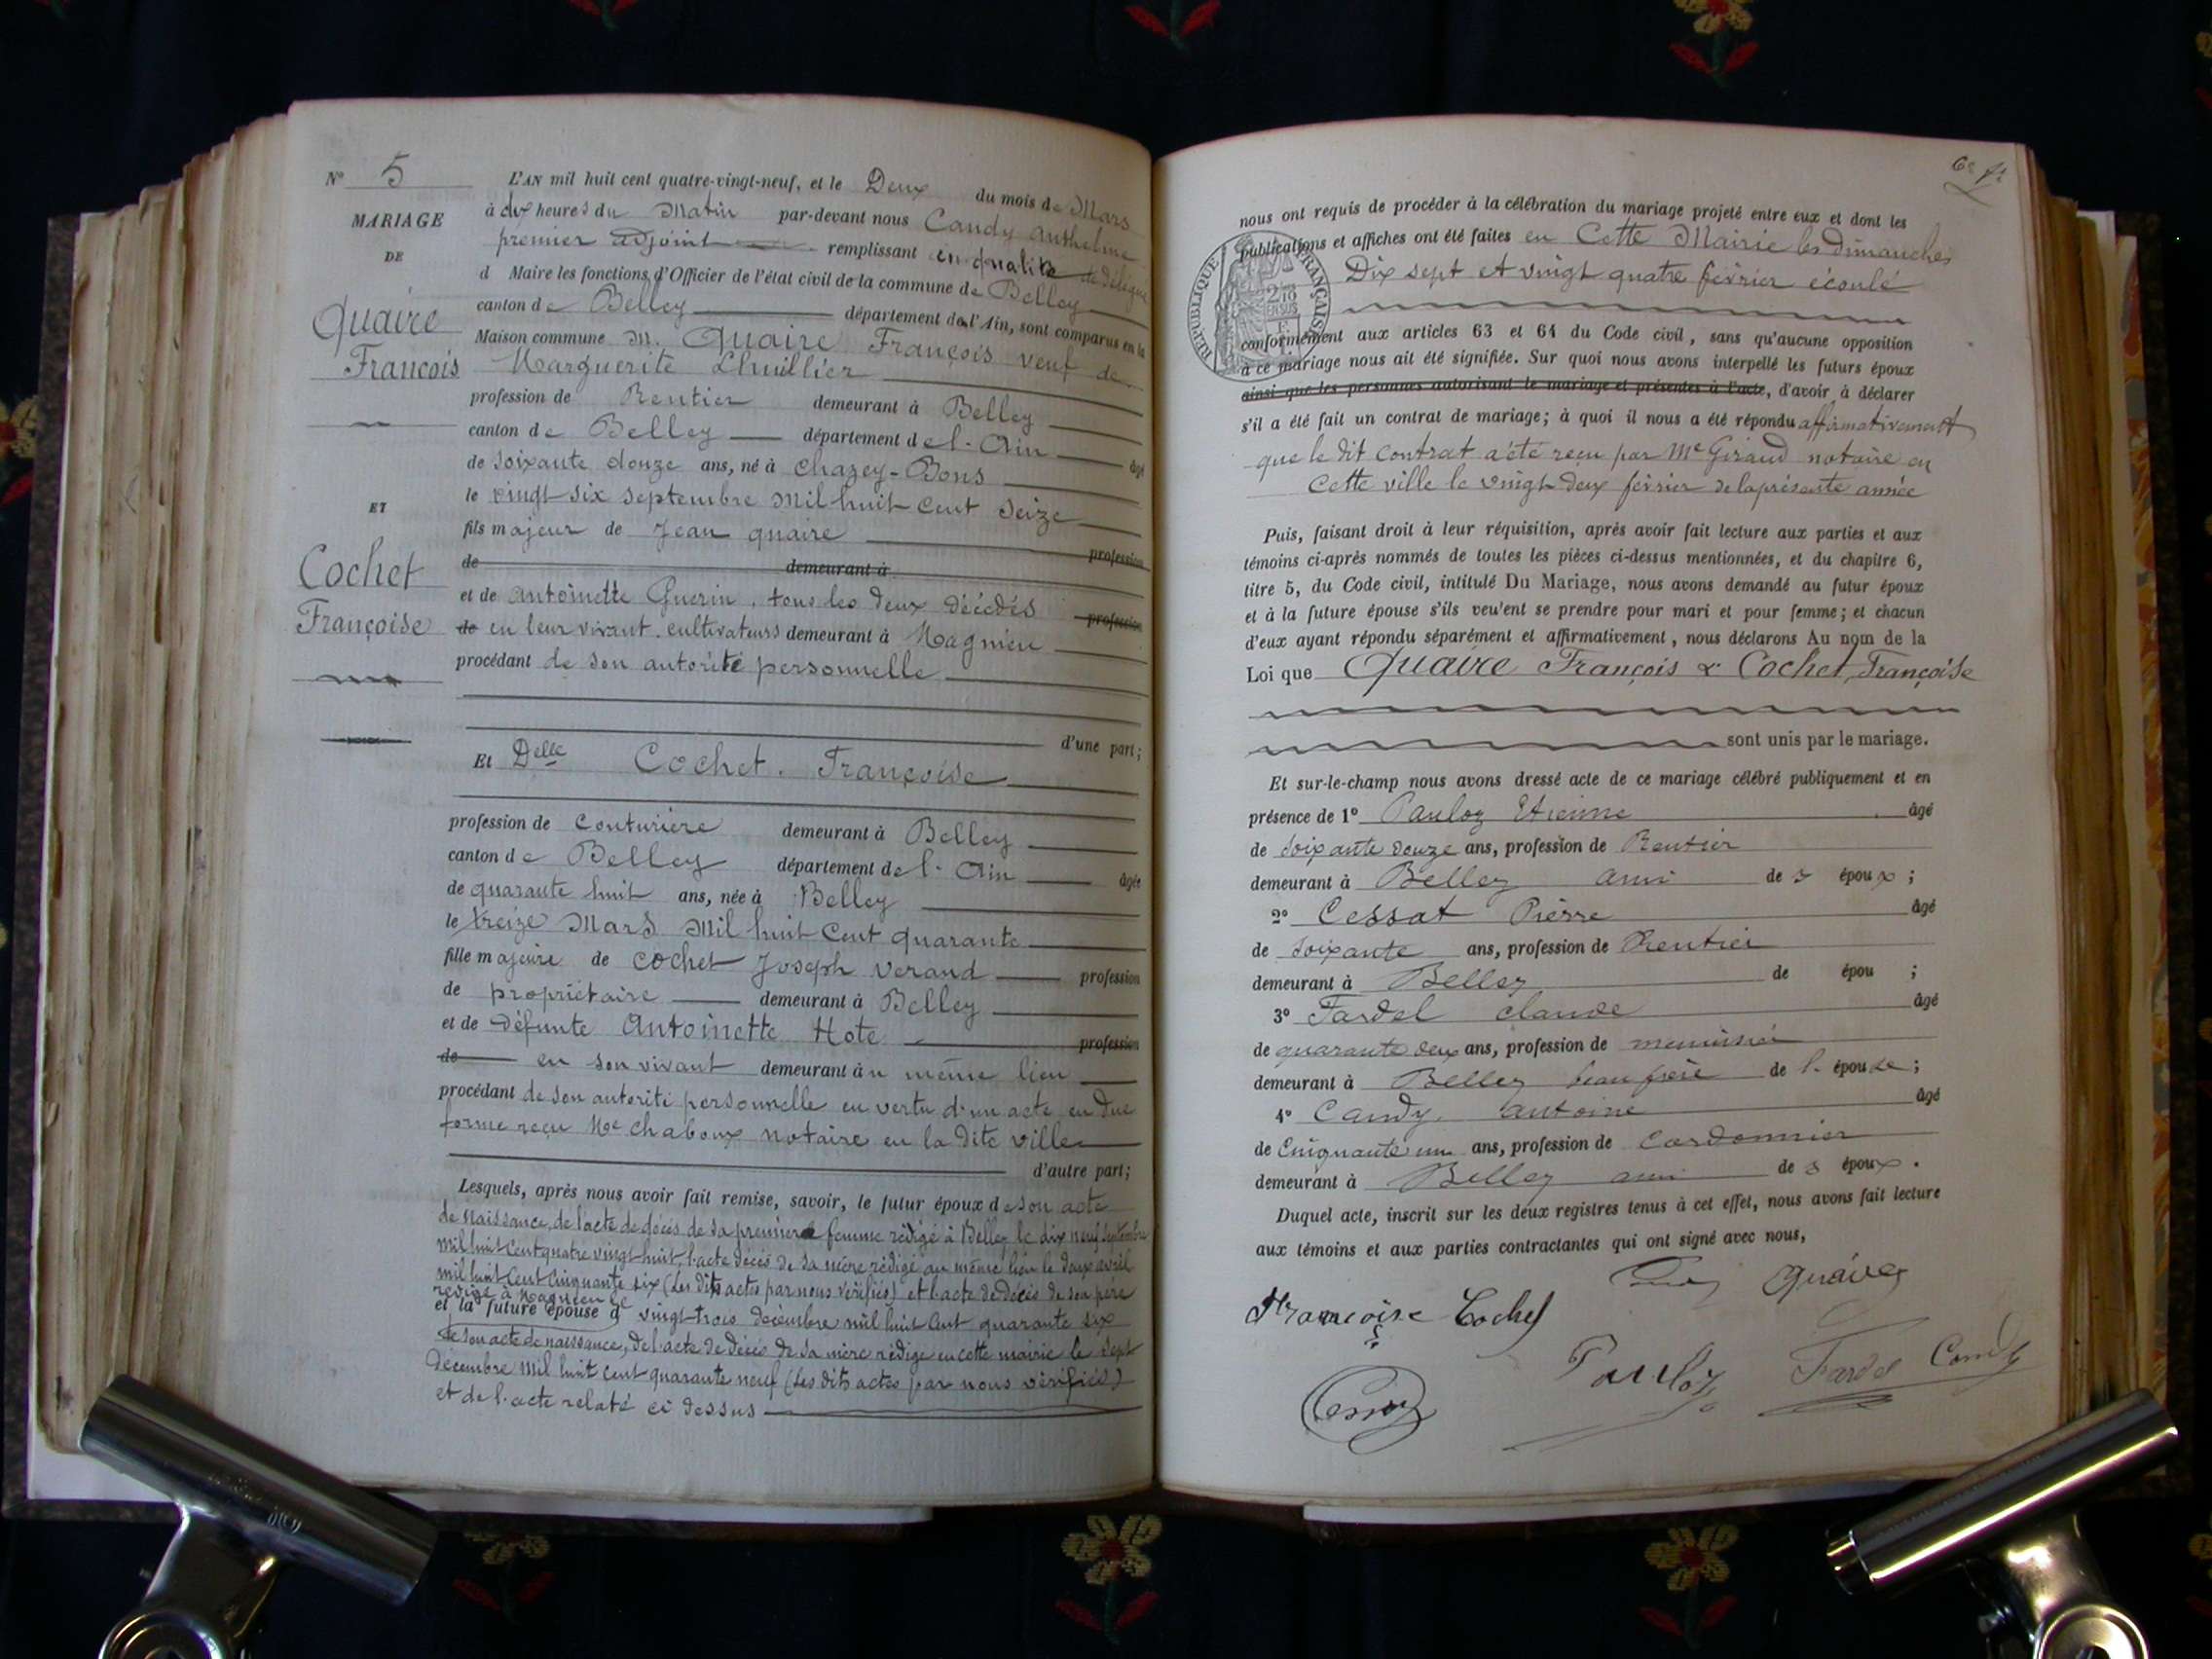 N° 5
MARIAGE
DE
Quaire
François
ET
Cochet
Françoise
L'AN mil huit cent quatre-vingt-neuf, et le Deux du mois de Mars
à dix heures du Matin par-devant nous Candy Anthelme
premier adjoint remplissant en qualité de délégué
d Maire les fonctions d'Officier de l'état civil de la commune de Belley
canton de Belley département de l'Ain, sont comparus en la
Maison commune M. Quaire François veuf de
Marguerite Lhuillier
profession de Rentier demeurant à Belley
canton de Belley département de l'Ain âgé
de soixante douze ans, né à Chazey-Bons
le vingt six septembre mil huit cent seize
fils majeur de Jean quaire profession
de demeurant à
et de Antoinette Guerin, tous les deux décédés profession
de en leur vivant cultivateurs demeurant à Magnieu
procédant de son autorité personnelle
d'une part;
Et Delle Cochet. Françoise
profession de Couturiere demeurant à Belley
canton de Belley département de l'Ain âgée
de quarante huit ans, née à Belley
le treize Mars Mil huit Cent quarante
fille majeure de Cochet Joseph Verand profession
de propriétaire demeurant à Belley
et de défunte Antoinette Hote profession
de en son vivant demeurant au même lieu
procédant de son autorité personnelle en vertu d'un acte en due
forme reçu Me Chaboux notaire en la dite ville
d'autre part;
Lesquels, après nous avoir fait remise, savoir, le futur époux de son acte
de Naissance, de l'acte de décès de sa première femme rédigé à Belley le dix neuf septembre
mil huit Cent quatre vingt huit, l'acte décès de sa mère rédigé au même lieu le douze avril
mil huit Cent Cinquante six (Les dits actes par nous vérifiés) et l'acte de décès de son père
rédigé à Magnieu le
et la future épouse d vingt-trois décembre mil huit Cent quarante six
de son acte de naissance, de l'acte de décès de sa mère rédigé en cette mairie le sept
décembre mil huit cent quarante neuf (Les dits actes par nous vérifiés)
et de l'acte relaté ci dessus
6e ft
nous ont requis de procéder à la célébration du mariage projeté entre eux et dont les
publications et affiches ont été faites en Cette Mairie les dimanches
Dix sept et vingt quatre février écoulé
RÉPUBLIQUE FRANÇAISE
2/10 EN SUS
conformément aux articles 63 et 64 du Code civil, sans qu'aucune opposition
à ce mariage nous ait été signifiée. Sur quoi nous avons interpellé les futurs époux
ainsi que les personnes autorisant le mariage et présentes à l'acte, d'avoir à déclarer
s'il a été fait un contrat de mariage; à quoi il nous a été répondu affirmativement
que le dit Contrat a été reçu par Me Giraud notaire en
Cette ville le vingt deux février de la présente année
Puis, faisant droit à leur réquisition, après avoir fait lecture aux parties et aux
témoins ci-après nommés de toutes les pièces ci-dessus mentionnées, et du chapitre 6,
titre 5, du Code civil, intitulé Du Mariage, nous avons demandé au futur époux
et à la future épouse s'ils veu'ent se prendre pour mari et pour femme; et chacun
d'eux ayant répondu séparément et affirmativement, nous déclarons Au nom de la
Loi que Quaire François & Cochet, Françoise
sont unis par le mariage.
Et sur-le-champ nous avons dressé acte de ce mariage célébré publiquement et en
présence de 1° Pauloz Etienne âgé
de soixante douze ans, profession de Rentier
demeurant à Belley ami de s époux;
2° Cessat Pierre âgé
de soixante ans, profession de Rentier
demeurant à Belley de épou ;
3° Fardel Claude âgé
de quarante deux ans, profession de menuisier
demeurant à Belley beau frère de l' épouse;
4° Candy, antoine âgé
de Cinquante un ans, profession de Cordonnier
demeurant à Belley ami de s époux.
Duquel acte, inscrit sur les deux registres tenus à cet effet, nous avons fait lecture
aux témoins et aux parties contractantes qui ont signé avec nous,
Quaire
Francoise Cochet
Pauloz Fardel Candy